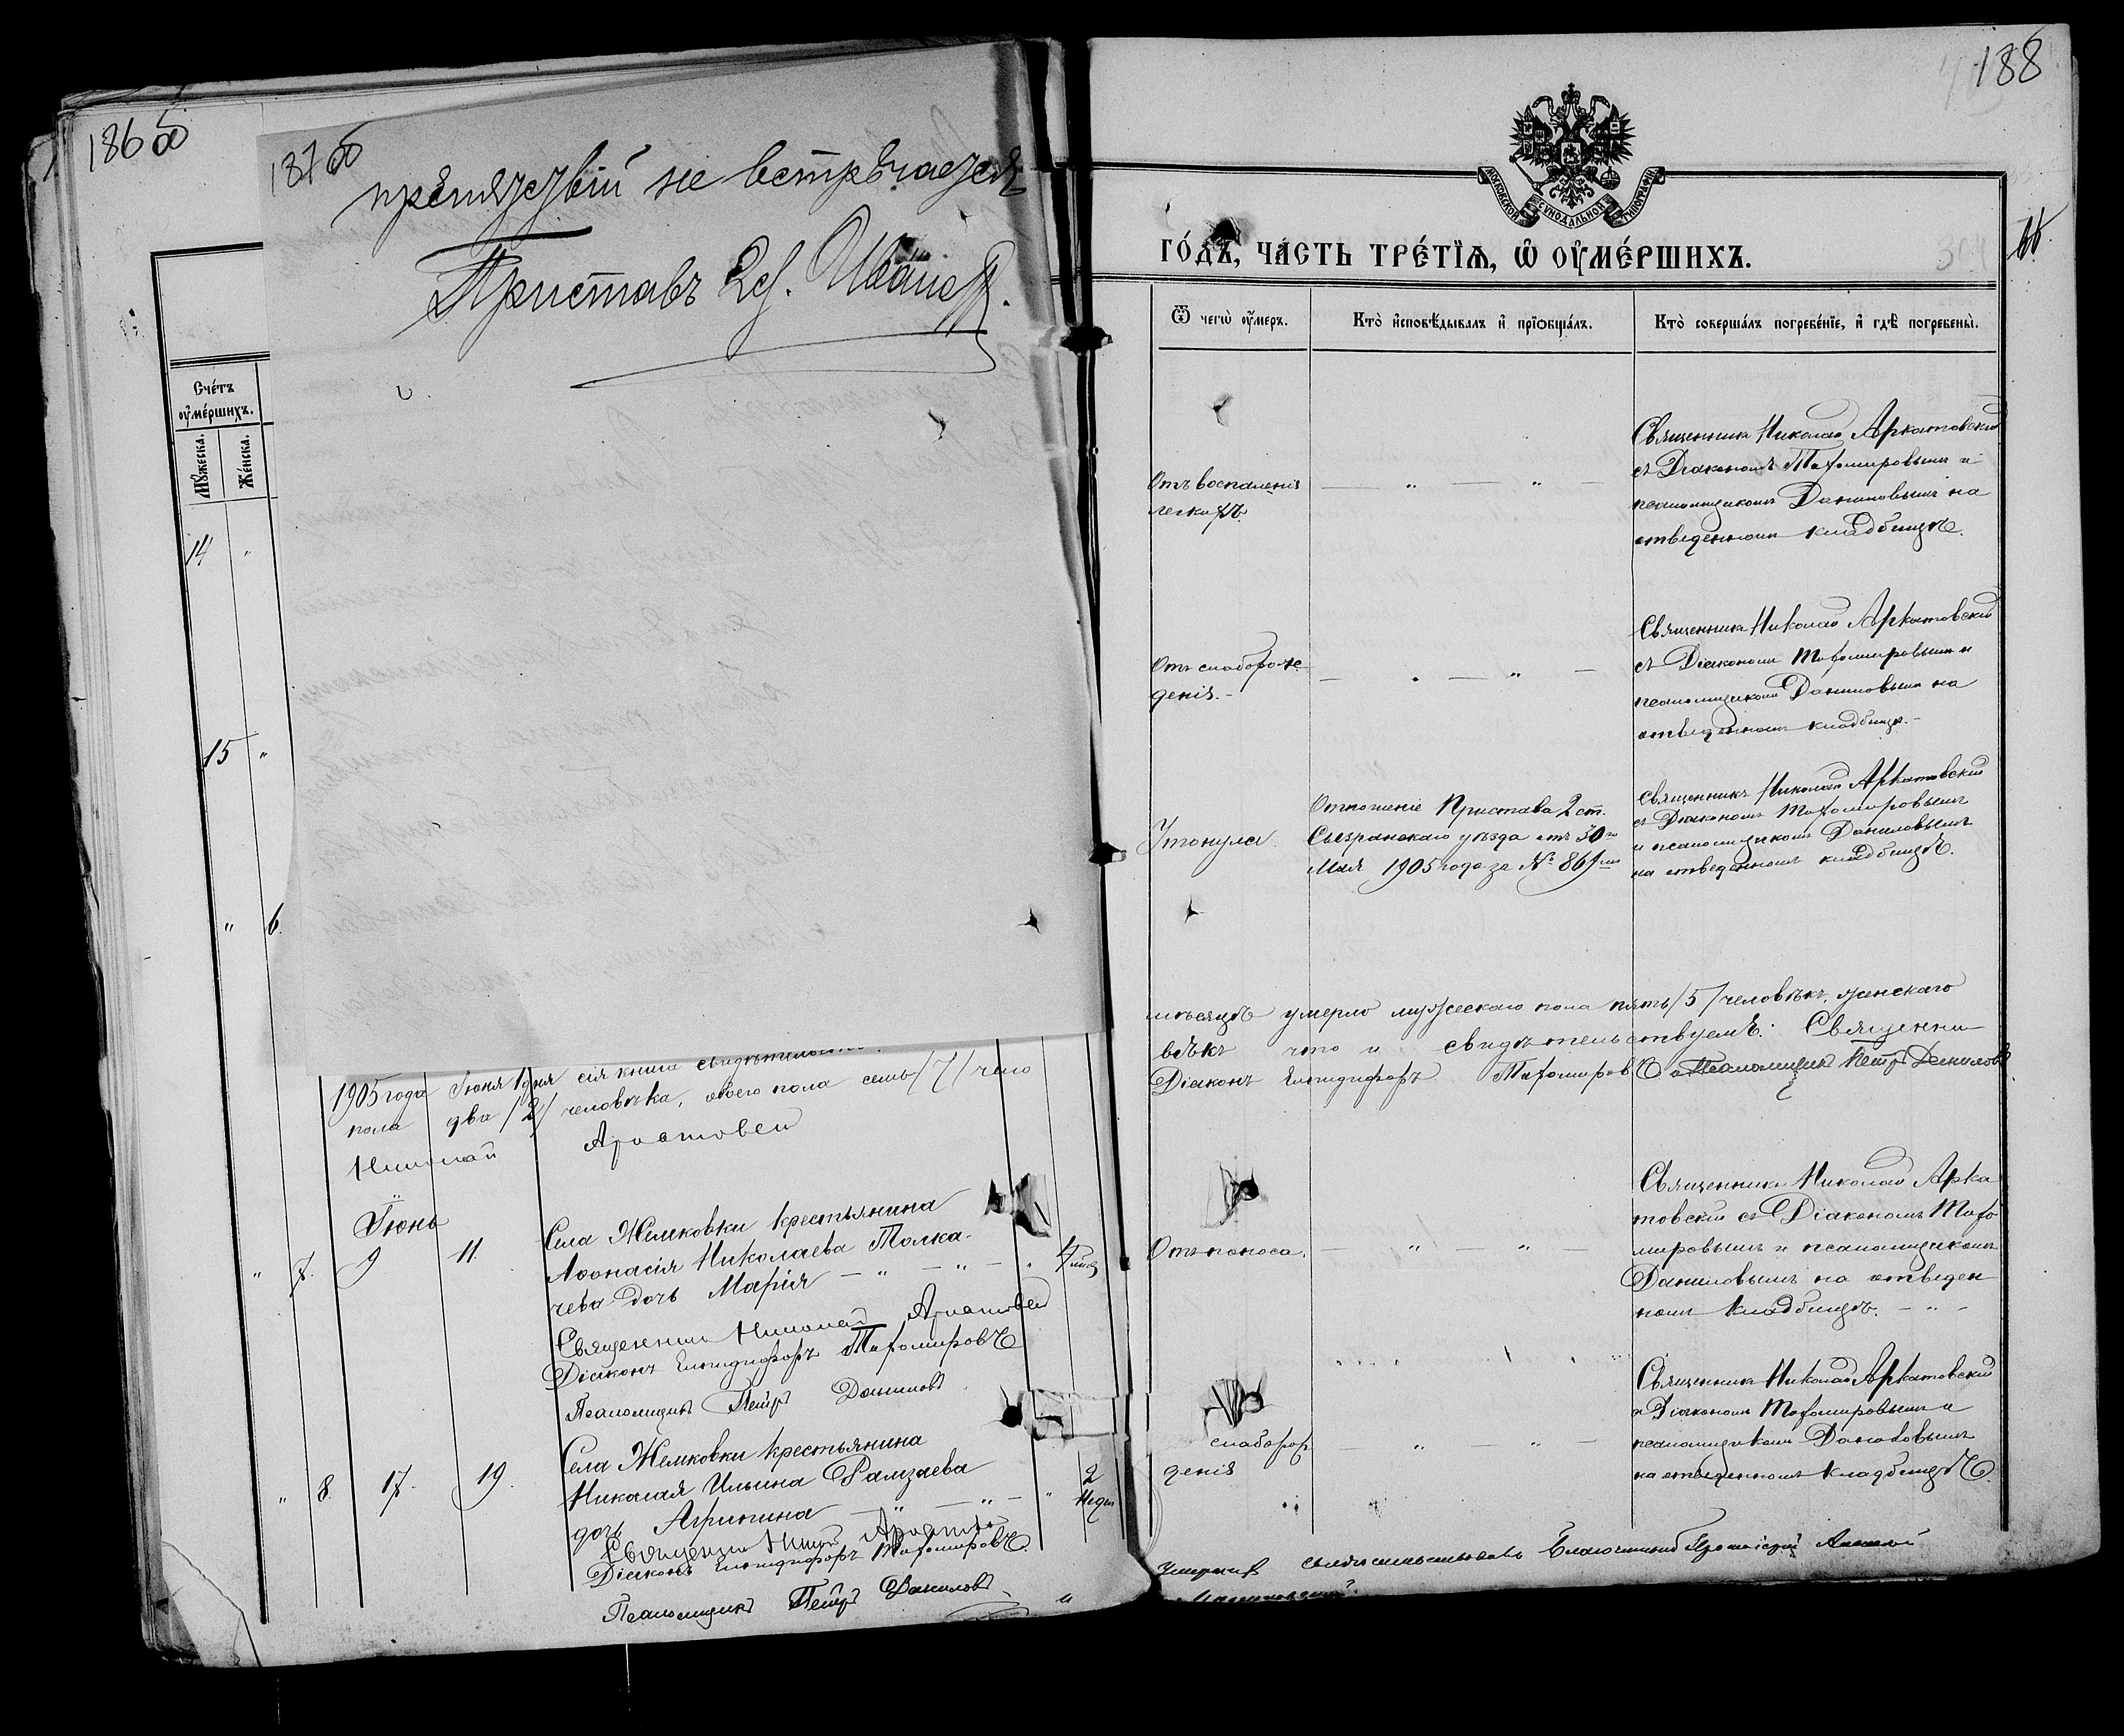 186 об
187 об
препятствій не встрѣчается
Приставъ 2 с. Иванов
Счётъ
оумершихъ.
Мужеска.
Женска.
14 "
15 "
" 6.
1905 года Іюня 1 дня сія книга свидѣтельство
пола два /2/ человѣка, обоего пола семь /7/ чело
Николай Аркатовскій
Іюнь
" 7. 9 11
Села Жемковки крестьянина
Аѳонасія Николаева Толка-
чева дочь Марія — " — " — " 4 мѣс
Священникъ Николай Аркатовскій
Діаконъ Епидифоръ Тихомировъ
Псаломщикъ Петръ Даниловъ
" 8. 17. 19.
Села Жемковки крестьянина
Николая Ильина Рамзаева
дочь Агрипина — " — " — " 2 Недѣл
Священник Никол Аркатов
Діаконъ Епидифоръ Тихомировъ
Псаломщикъ Петръ Даниловъ
188
МОСКОВСКОЙ СѴНОДАЛЬНОЙ ТИПОГРАФІИ
ГО́ДЪ, ЧА́СТЬ ТРЕ́ТІѦ, Ѡ҆ ОУ҆МЕ́РШИХЪ.
Ѿ чегѡ̀ оу҆́меръ.
Кто̀ и҆сповѣ́дывалъ и҆ прїѡбща́лъ.
Кто̀ соверша́лъ погребе́нїе, и҆ гдѣ̀ погребены̀.
Отъ воспаленія
легкихъ.
— " — " —
Священникъ Николай Аркатовскій
съ Діакономъ Тихомировымъ и
псаломщикомъ Даниловымъ на
отведенномъ кладбищѣ.
Отъ слаборож-
денія. -
— " — " —
Священникъ Николай Аркатовскій
съ Діакономъ Тихомировымъ и
псаломщикомъ Даниловымъ на
отведенномъ кладбищѣ. -
Утонула.
Отношеніе Пристава 2 ст.
Сызранскаго уѣзда отъ 30го
Мая 1905 года за №
Священникъ Николай Аркатовскій
съ Діакономъ Тихомировымъ
и псаломщикомъ Даниловымъ
на отведенномъ кладбищѣ.
мѣсяцѣ умерло мужескаго пола пять /5/ человѣкъ, женскаго
вѣкъ что и свидѣтельствуемъ: Священни-
Діаконъ Епидифоръ Тихомировъ Псаломщикъ Петръ Даниловъ
Отъ поноса.
— " — " —
Священникъ Николай Арка
товскій съ Діакономъ Тихо
мировымъ и псаломщикомъ
Даниловымъ на отведен
номъ кладбищѣ. - " -
слаборож
денія
" — " —
Священникъ Николай Аркатовскій
съ Діакономъ Тихомировымъ и
псаломщикомъ Даниловымъ
на отведенномъ кладбищѣ.
свидѣтельствовалъ Благочинный Протоіерей